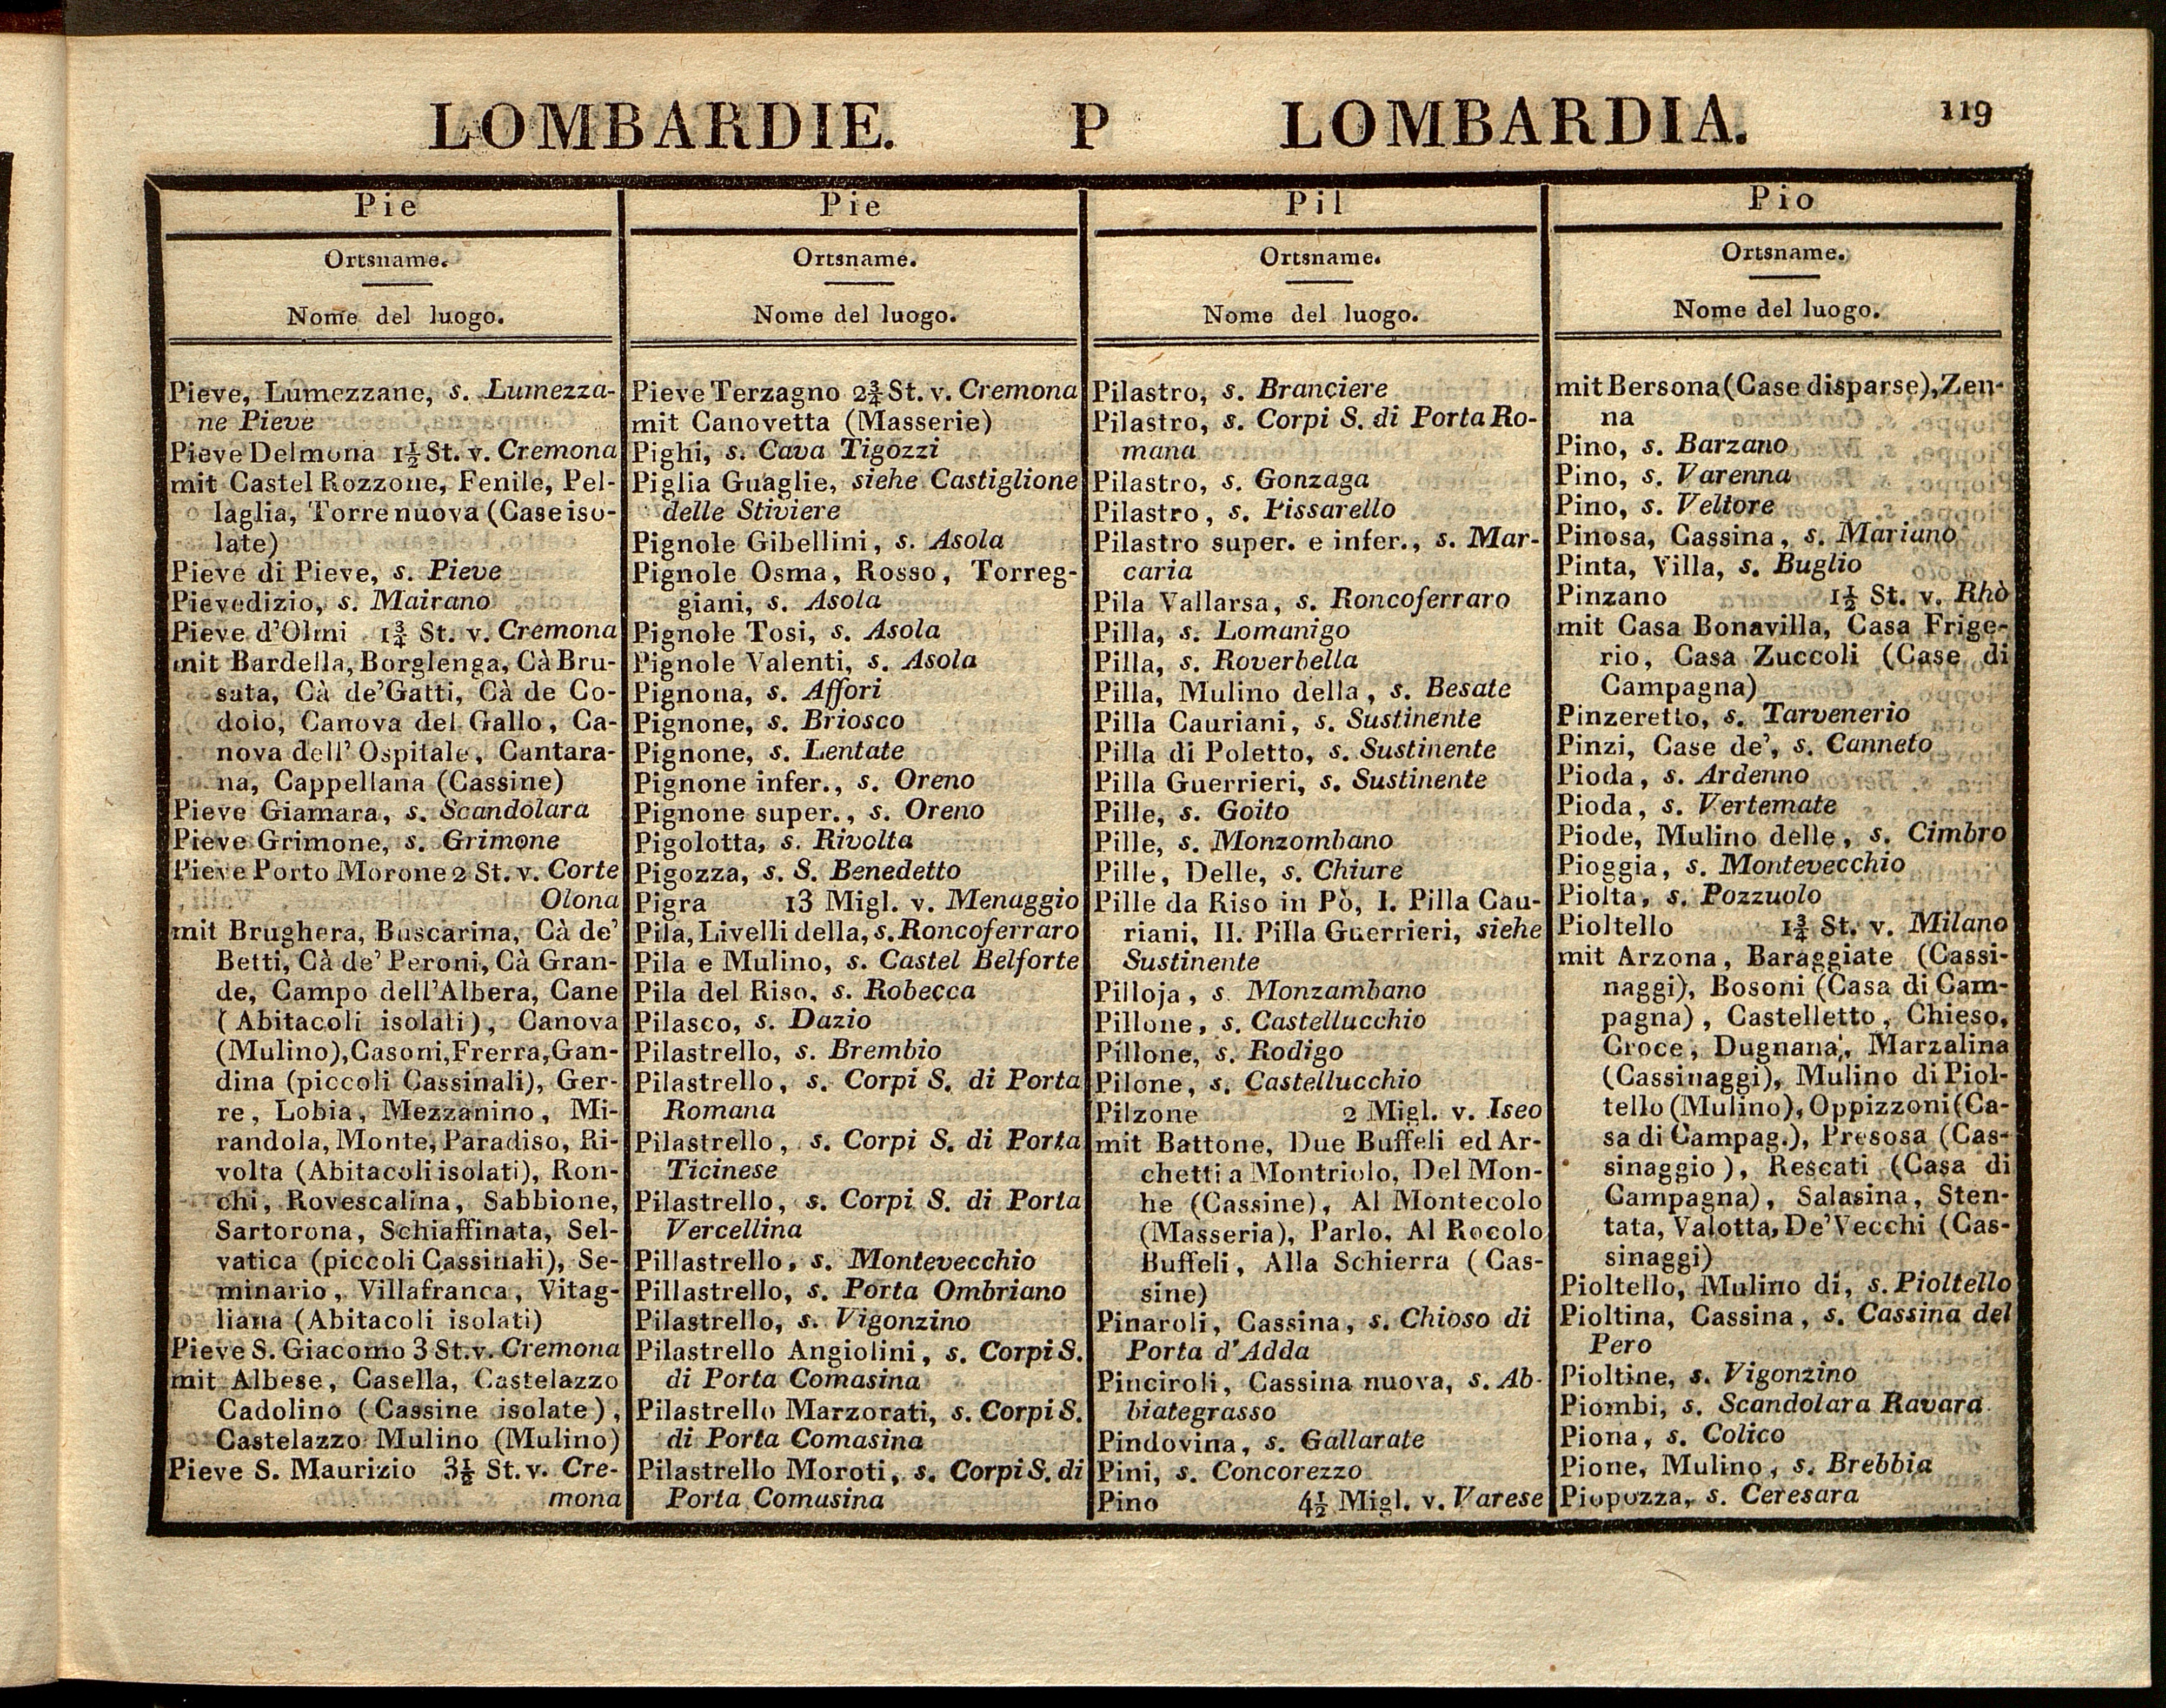 LOMBARDIE. P LOMBARDIA. 119
Pie
Ortsname.
Nome del luogo.
Pieve, Lumezzane, s. Lumezza-
ne Pieve
Pieve Delmona 1½ St. v. Cremona
mit Castel Rozzone, Fenile, Pel-
laglia, Torre nuova (Case iso-
late)
Pieve di Pieve, s. Pieve
Pievedizio, s. Mairano
Pieve d'Olmi 1¾ St. v. Cremona
mit Bardella, Borglenga, Cà Bru-
sata, Cà de'Gatti, Cà de Co-
dolo, Canova del Gallo, Ca-
nova dell'Ospitale, Cantara-
na, Cappellana (Cassine)
Pieve Giamara, s. Scandolara
Pieve Grimone, s. Grimone
Pieve Porto Morone 2 St. v. Corte
Olona
mit Brughera, Buscarina, Cà de'
Betti, Cà de' Peroni, Cà Gran-
de, Campo dell'Albera, Cane
(Abitacoli isolati), Canova
(Mulino), Casoni, Frerra, Gan-
dina (piccoli Cassinali), Ger-
re, Lobia, Mezzanino, Mi-
randola, Monte, Paradiso, Ri-
volta (Abitacoli isolati), Ron-
chi, Rovescalina, Sabbione,
Sartorona, Schiaffinata, Sel-
vatica (piccoli Cassinali), Se-
minario, Villafranca, Vitag-
liana (Abitacoli isolati)
Pieve S. Giacomo 3 St. v. Cremona
mit Albese, Casella, Castelazzo
Cadolino (Cassine isolate),
Castelazzo Mulino (Mulino)
Pieve S. Maurizio 3½ St. v. Cre-
mona
Pie
Ortsname.
Nome del luogo.
Pieve Terzagno 2¾ St. v. Cremona
mit Canovetta (Masserie)
Pighi, s. Cava Tigozzi
Piglia Guaglie, siehe Castiglione
delle Stiviere
Pignole Gibellini, s. Asola
Pignole Osma, Rosso, Torreg-
giani, s. Asola
Pignole Tosi, s. Asola
Pignole Valenti, s. Asola
Pignona, s. Affori
Pignone, s. Briosco
Pignone, s. Lentate
Pignone infer., s. Oreno
Pignone super., s. Oreno
Pigolotta, s. Rivolta
Pigozza, s. S. Benedetto
Pigra 13 Migl. v. Menaggio
Pila, Livelli della, s. Roncoferraro
Pila e Mulino, s. Castel Belforte
Pila del Riso, s. Robecca
Pilasco, s. Dazio
Pilastrello, s. Brembio
Pilastrello, s. Corpi S. di Porta
Romana
Pilastrello, s. Corpi S. di Porta
Ticinese
Pilastrello, s. Corpi S. di Porta
Vercellina
Pillastrello, s. Montevecchio
Pillastrello, s. Porta Ombriano
Pilastrello, s. Vigonzino
Pilastrello Angiolini, s. Corpi S.
di Porta Comasina
Pilastrello Marzorati, s. Corpi S.
di Porta Comasina
Pilastrello Moroti, s. Corpi S. di
Porta Comasina
Pil
Ortsname.
Nome del luogo.
Pilastro, s. Branciere
Pilastro, s. Corpi S. di Porta Ro-
mana
Pilastro, s. Gonzaga
Pilastro, s. Fissarello
Pilastro super. e infer., s. Mar-
caria
Pila Vallarsa, s. Roncoferraro
Pilla, s. Lomanigo
Pilla, s. Roverbella
Pilla, Mulino della, s. Besate
Pilla Cauriani, s. Sustinente
Pilla di Poletto, s. Sustinente
Pilla Guerrieri, s. Sustinente
Pille, s. Goito
Pille, s. Monzombano
Pille, Delle, s. Chiure
Pille da Riso in Pò, I. Pilla Cau-
riani, II. Pilla Guerrieri, siehe
Sustinente
Pilloja, s. Monzambano
Pillone, s. Castellucchio
Pillone, s. Rodigo
Pilone, s. Castellucchio
Pilzone 2 Migl. v. Iseo
mit Battone, Due Buffeli ed Ar-
chetti a Montriolo, Del Mon-
he (Cassine), Al Montecolo
(Masseria), Parlo, Al Rocolo
Buffeli, Alla Schierra (Cas-
sine)
Pinaroli, Cassina, s. Chioso di
Porta d'Adda
Pinciroli, Cassina nuova, s. Ab-
biategrasso
Pindovina, s. Gallarate
Pini, s. Concorezzo
Pino 4½ Migl. v. Varese
Pio
Ortsname.
Nome del luogo.
mit Bersona (Case disparse), Zen-
na
Pino, s. Barzano
Pino, s. Varenna
Pino, s. Veltore
Pinosa, Cassina, s. Mariano
Pinta, Villa, s. Buglio
Pinzano 1½ St. v. Rhò
mit Casa Bonavilla, Casa Frige-
rio, Casa Zuccoli (Case di
Campagna)
Pinzeretto, s. Tarvenerio
Pinzi, Case de', s. Canneto
Pioda, s. Ardenno
Pioda, s. Vertemate
Piode, Mulino delle, s. Cimbro
Pioggia, s. Montevecchio
Piolta, s. Pozzuolo
Pioltello 1¾ St. v. Milano
mit Arzona, Baraggiate (Cassi-
naggi), Bosoni (Casa di Cam-
pagna), Castelletto, Chieso,
Croce, Dugnana, Marzalina
(Cassinaggi), Mulino di Piol-
tello (Mulino), Oppizzoni (Ca-
sa di Campag.), Presosa (Cas-
sinaggio), Rescati (Casa di
Campagna), Salasina, Sten-
tata, Valotta, De'Vecchi (Cas-
sinaggi)
Pioltello, Mulino di, s. Pioltello
Pioltina, Cassina, s. Cassina del
Pero
Pioltine, s. Vigonzino
Piombi, s. Scandolara Ravara
Piona, s. Colico
Pione, Mulino, s. Brebbia
Piopozza, s. Ceresara